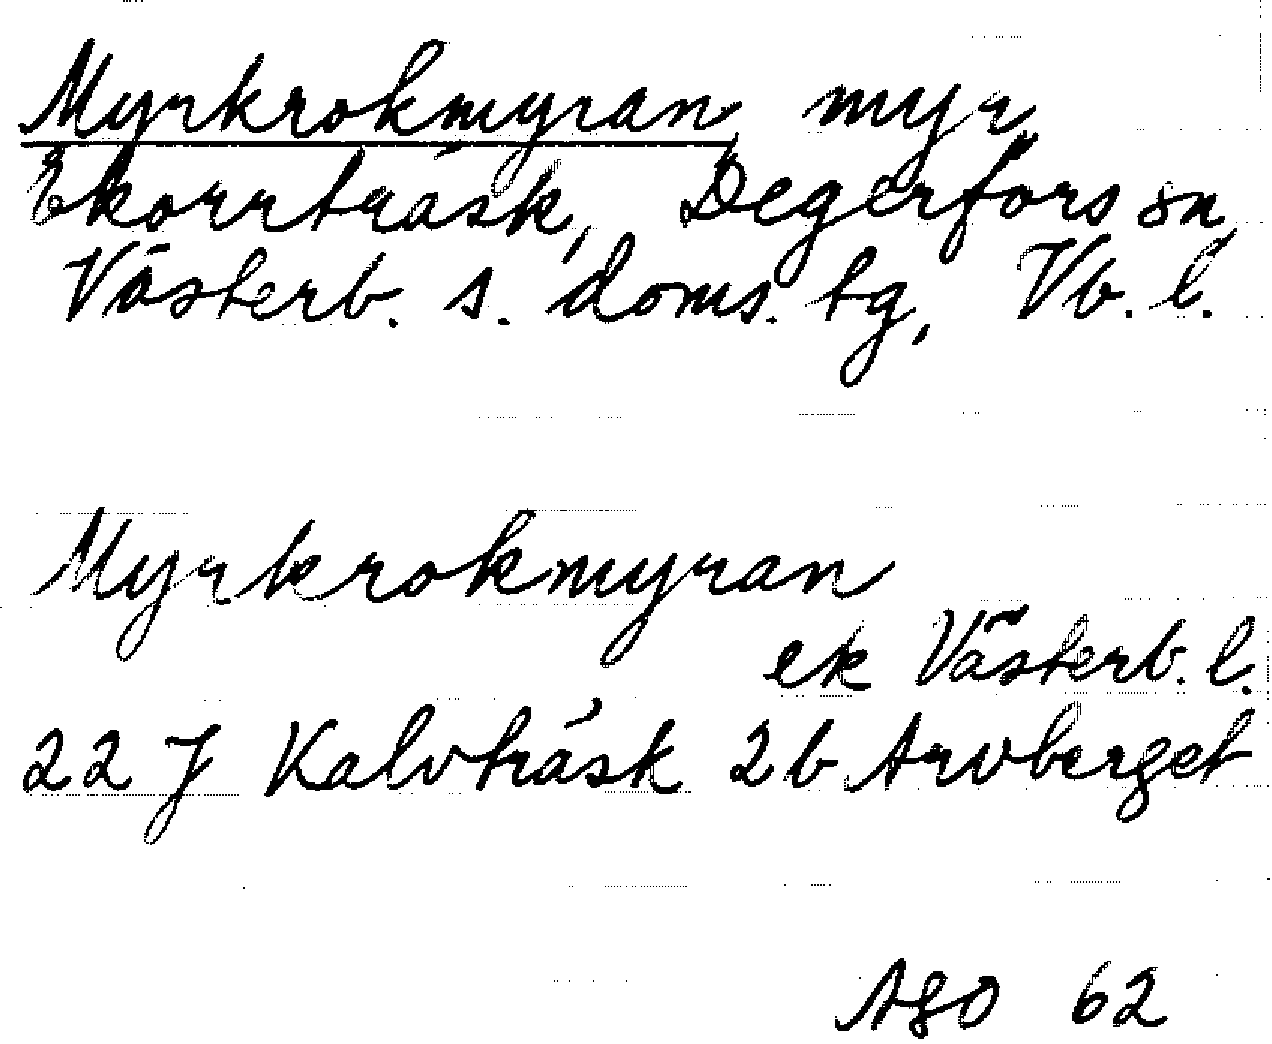 Myrkrokmyran, myr,
Ekorrträsk, Degerfors sn,
Västerb. s. doms. tg, Vb. l.
Myrkrokmyran
ek Västerb. l.
22 J Kalvträsk 2b Arvberget
ÅGO 62